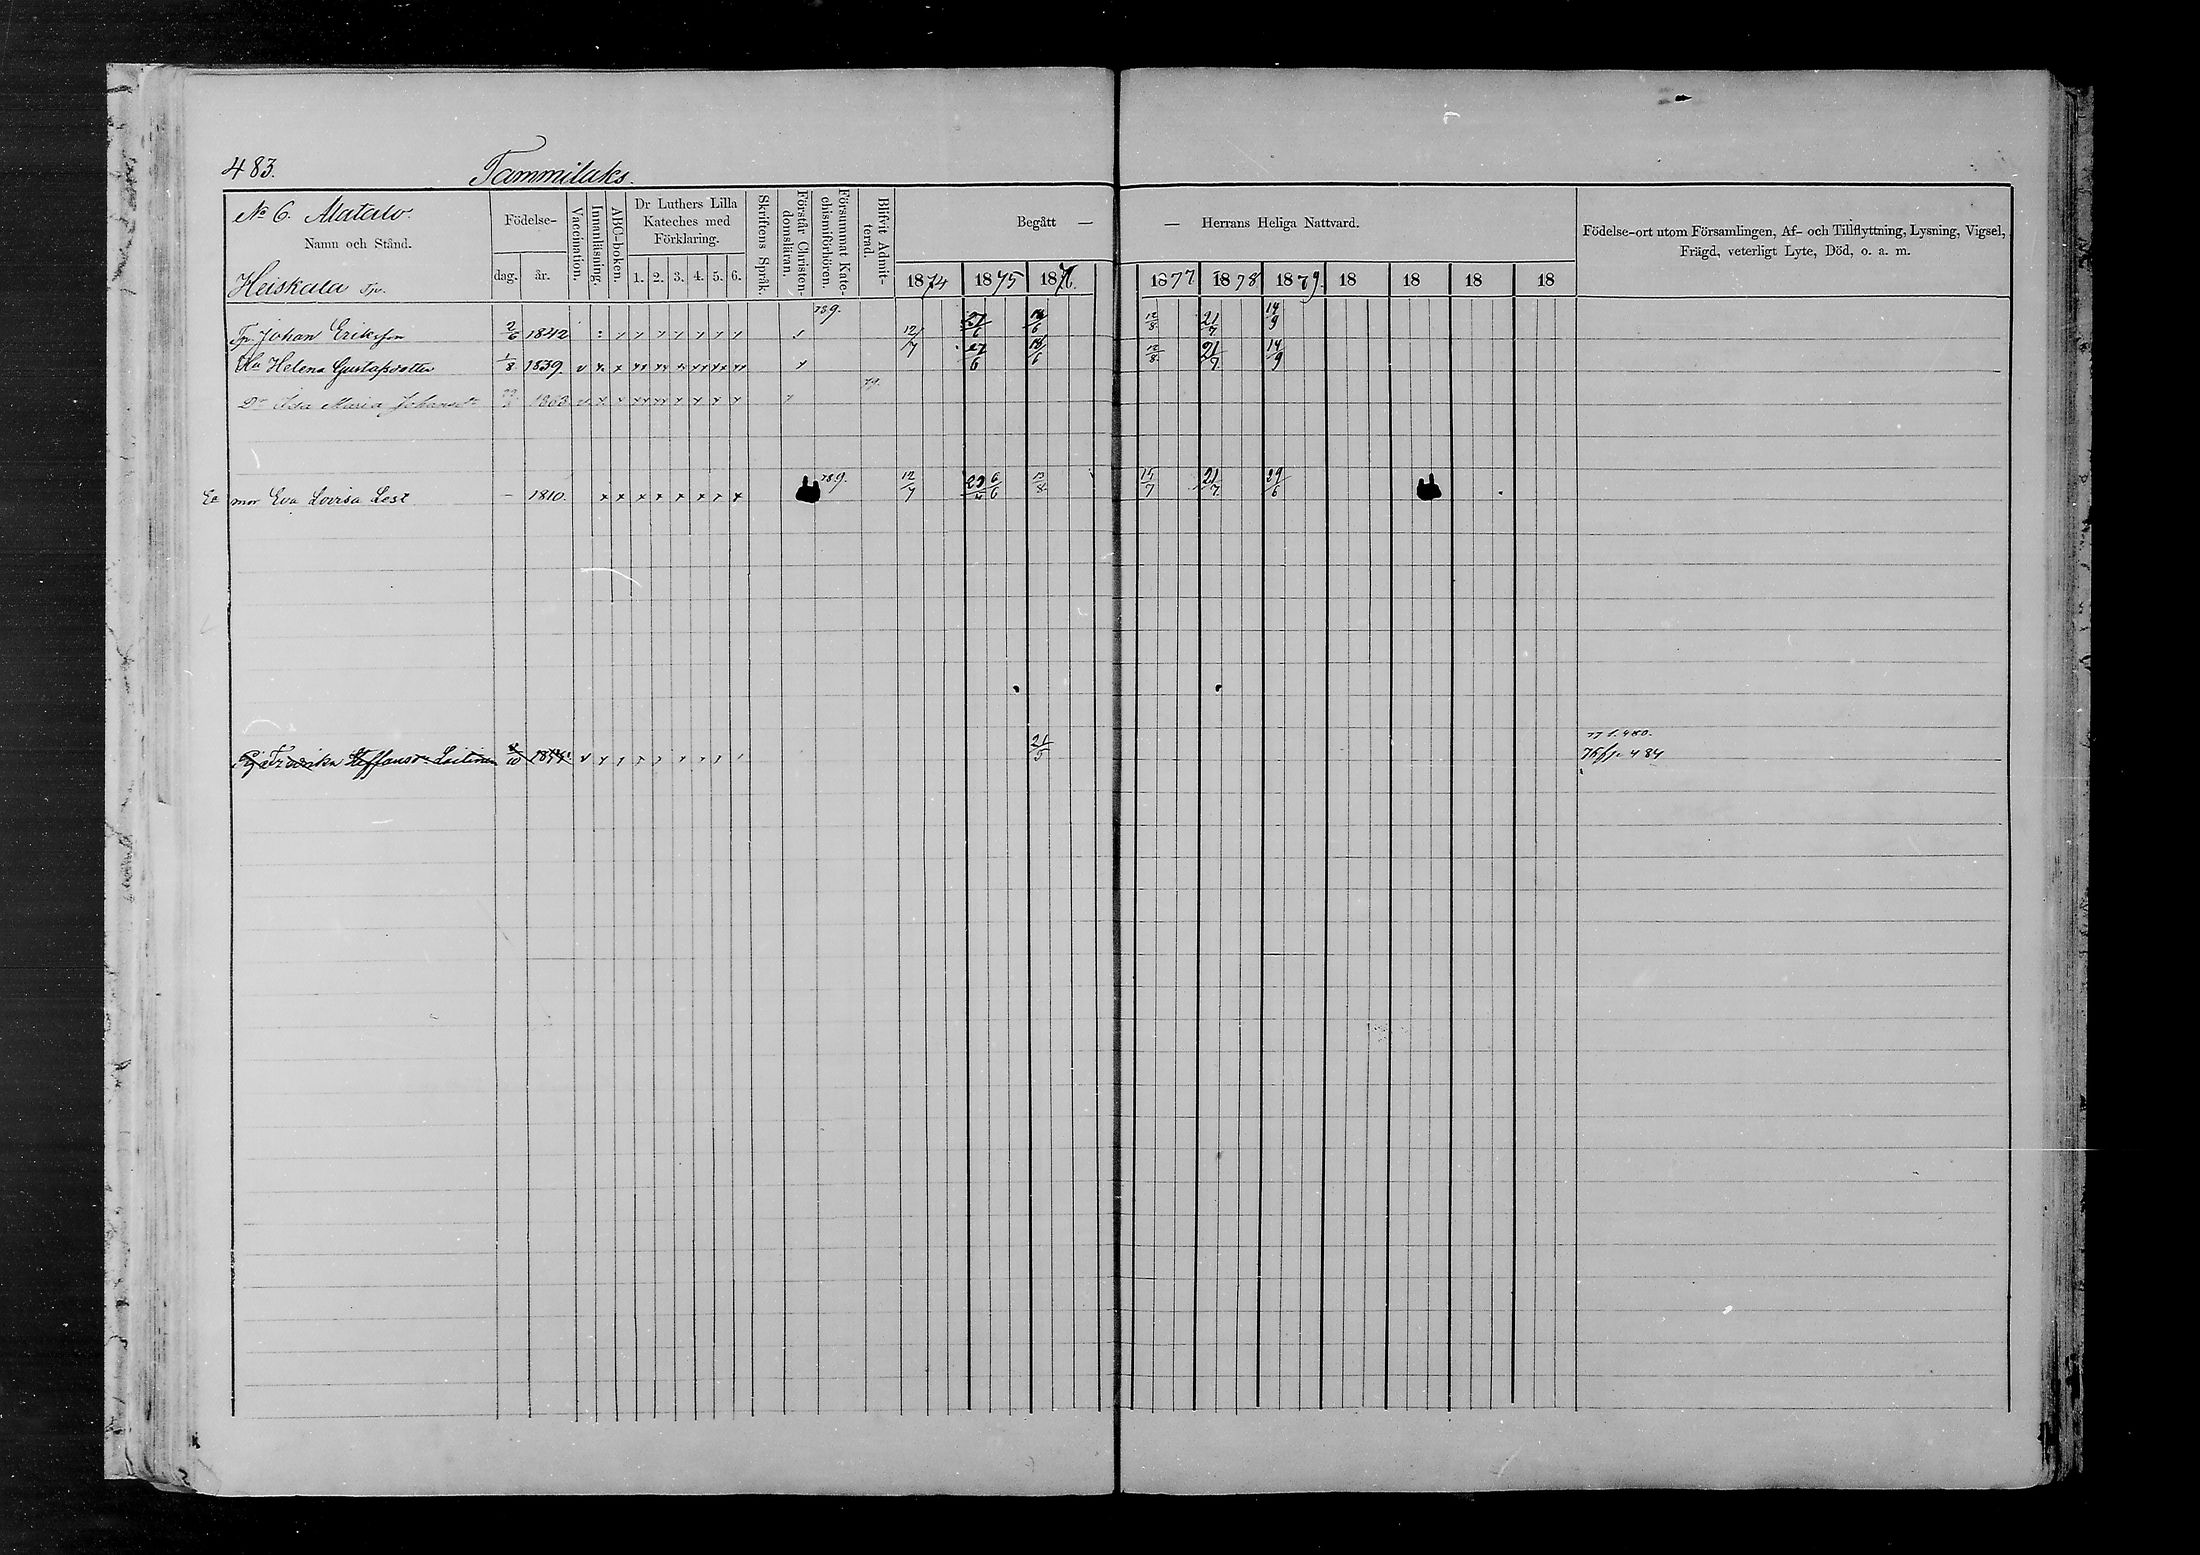 483.
Tammiluks.
No 6. Matalo.
Namn och Stånd.
Heiskala Tp.
Födelse-
dag. år.
Vaccination.
Innanläsning.
ABC-boken.
Dr Luthers Lilla
Kateches med
Förklaring.
1. 2. 3. 4. 5. 6.
Skriftens Språk.
Förstår Christen-
domsläran.
Försummat Kate-
chismiförhören.
Blifvit Admit-
terad.
Begått — — Herrans Heliga Nattvard.
1874 1875 1876. 1877 1878 1879. 18 18 18 18
Födelse-ort utom Församlingen, Af- och Tillflyttning, Lysning, Vigsel,
Frägd, veterligt Lyte, Död, o. a. m.
Tp. Johan Eriksson 2/6 1842 789. 12/7 27/6 18/6 12/8 21/7 14/9
Hu Helena Gustafsdotter 1/8 1839. v 27/6 18/6 12/8 21/7 14/9
Dr Ida Maria Johansdr 1863 79.
Ea mor Eva Lovisa Lest - 1810. 789. 12/7 6/6 13/8 15/7 21/7 29/6
Pig. Fredrika Steffansdr Laitinen /10 1854. 21/5
77 s. 480.
76 fl. 484